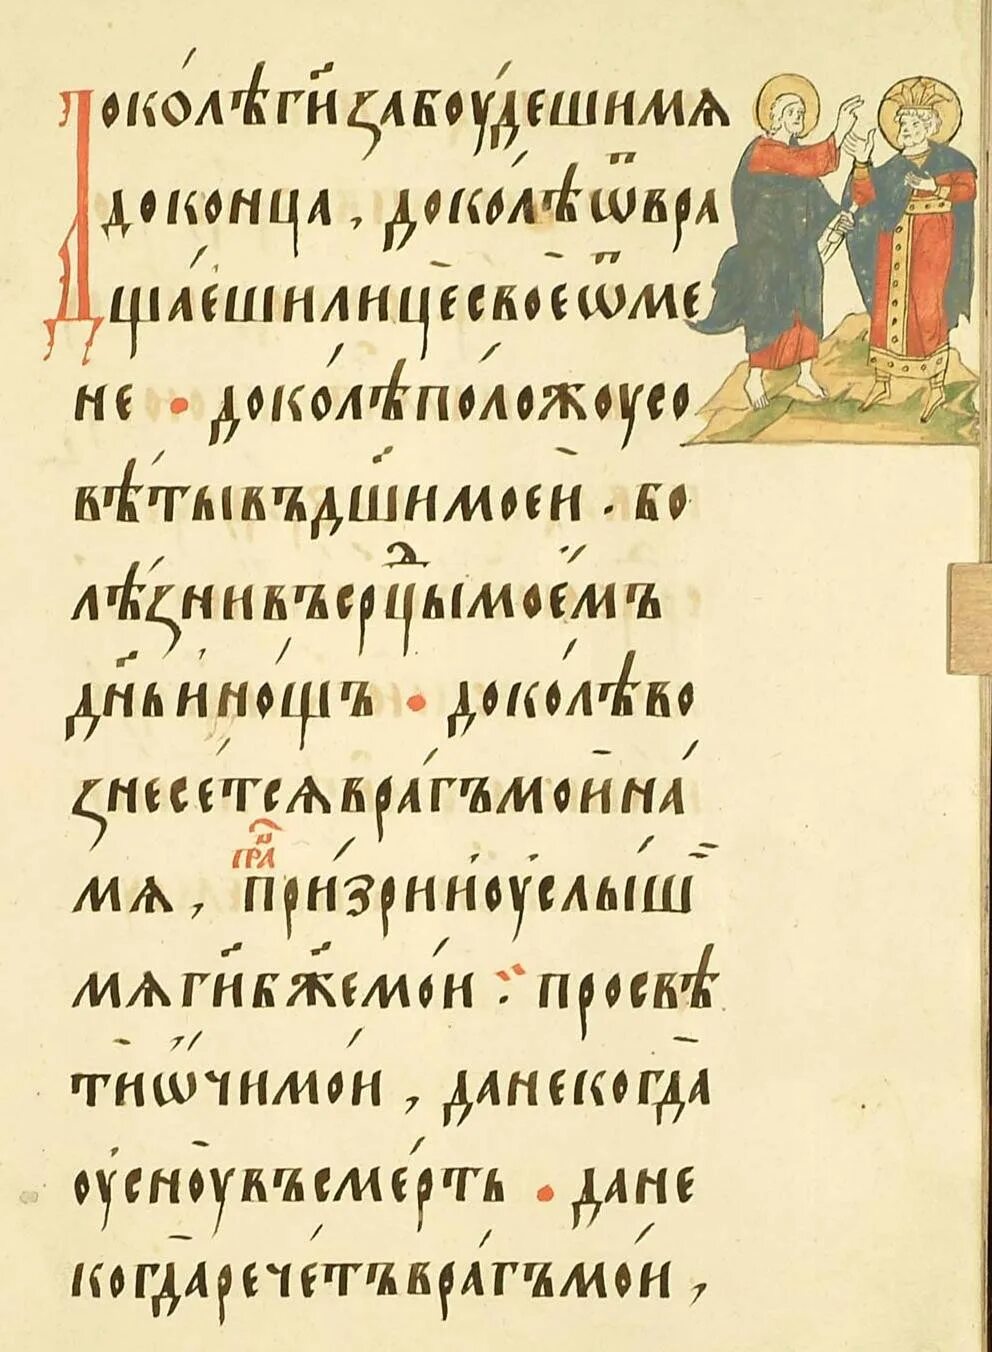 Доко́лѣ гй҃ забоу́деши мя
до конца, доко́лѣ ѿвра
ща́еши лице свое ѿ ме
не • доко́лѣ поло́жоу со
вѣ́ты въ дш҃и моей . бо
лѣ́зни въ срⷣцы мое́мъ
дн҃ь и но́щъ • доко́лѣ во
знесе́тся вра́гъ мой на́
мя , при́зри и оуслы́ши
пра
мя гй҃ бж҃е мо́й : просвѣ
ти ѡ́чи мо́и , да некогда
оусноу въ сме́рть • да не
когда рече́тъ вра́гъ мо́й ,